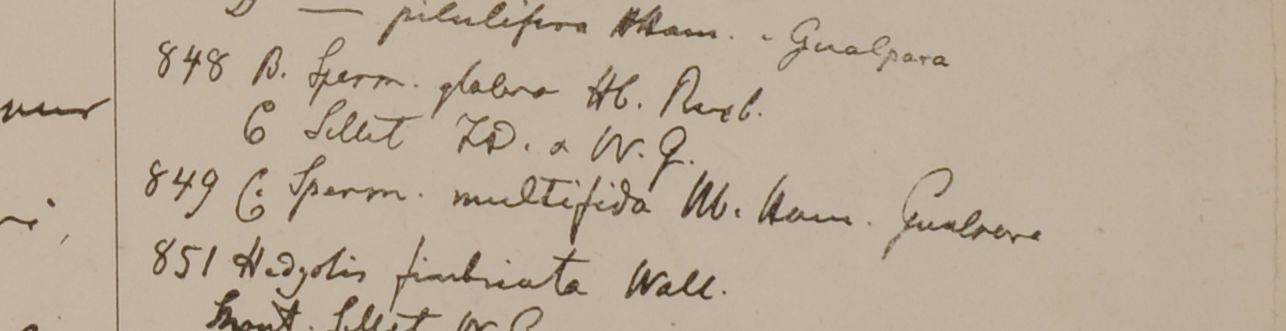 D — pilulifera Ham. - Gualpara
848 B. Sperm. glabra Hb. Roxb.
C Sillet F.D. & W.G.
849 C. Sperm. multifida Hb. Ham. Gualpara
851 Hedyotis fimbriata Wall.
Mont. Sillet W.G.